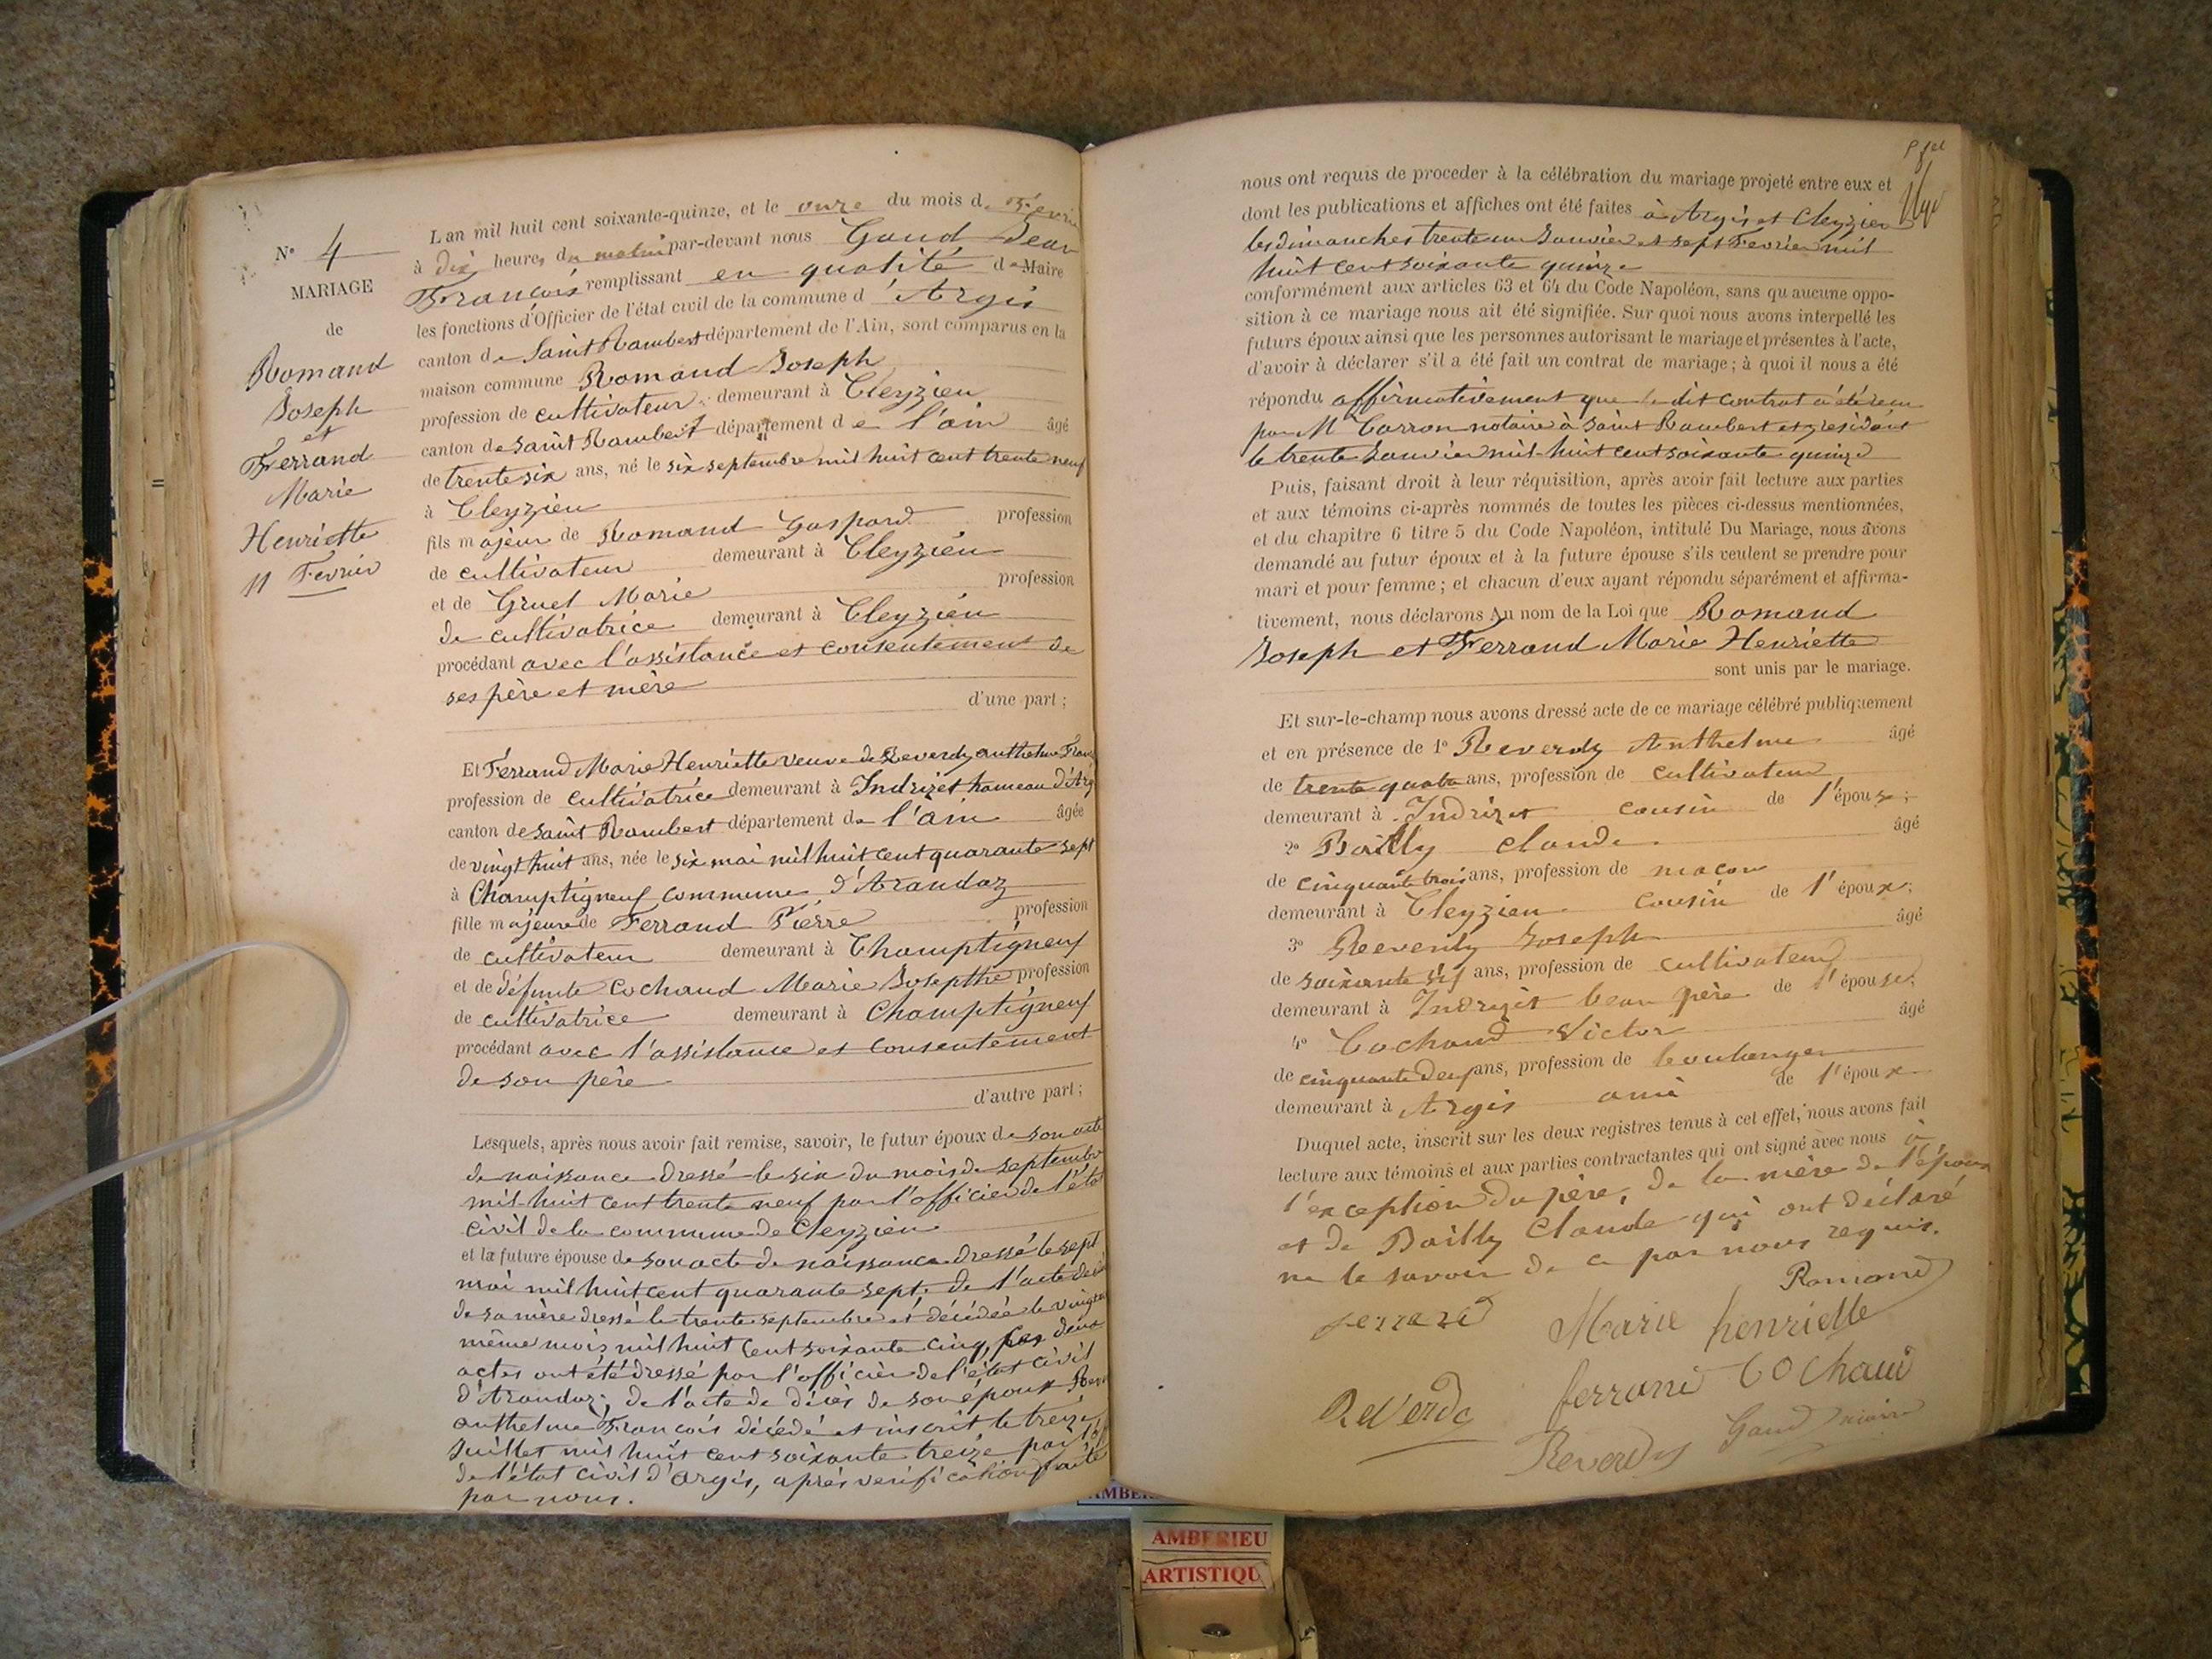 N° 4
MARIAGE
de
Romand
Joseph
et
Ferrand
Marie
Henriette
11 Fevrier
L an mil huit cent soixante-quinze, et le onze du mois de Fevrier
à dix heures du matin par-devant nous Gaud Jean
François remplissant en qualité de Maire
les fonctions d'Officier de l'état civil de la commune d'Argis
canton de Saint Rambert département de l'Ain, sont comparus en la
maison commune Romand Joseph
profession de cultivateur demeurant à Cleyzieu
canton de Saint Rambert département de l'ain âgé
de trente six ans, né le six septembre mil huit cent trente neuf
à Cleyzieu
fils majeur de Romand Gaspard profession
de cultivateur demeurant à Cleyzieu
et de Gruel Marie profession
de cultivatrice demeurant à Cleyzieu
procédant avec l'assistance et consentement de
ses père et mère
d'une part ;
Et Ferrand Marie Henriette veuve de Reverdy anthelme Franç
profession de cultivatrice demeurant à Indrizet hameau d'Arg
canton de saint Rambert département de l'ain âgée
de vingt huit ans, née le six mai mil huit cent quarante sept
à Champtigneuf commune d'Arandaz
fille majeure de Ferrand Pierre profession
de cultivateur demeurant à Champtigneuf
et de défunte Cochaud Marie Josepthe profession
de cultivatrice demeurant à Champtigneuf
procédant avec l'assistance et consentement
de son père
d'autre part ;
Lesquels, après nous avoir fait remise, savoir, le futur époux de son acte
de naissance dressé le six du mois de septembre
mil huit cent trente neuf par l'officier de l'état
civil de la commune de Cleyzieu
et la future épouse de son acte de naissance dressé le sept
mai mil huit cent quarante sept. de l'acte de
de sa mère dressé le trente septembre et décédée le vingt
même mois mil huit cent soixante cinq, deux
actes ont été dressé par l'officier de l'état civil
d'Arandaz ; de l'acte de décès de son époux Rev
anthelme François décédé et inscrit le treize
Juillet mil huit cent soixante treize par l'off
de l'état civil d'argis, après vérification faite
par nous.
nous ont requis de proceder à la célébration du mariage projeté entre eux et
dont les publications et affiches ont été faites à Argis et Cleyzieu
les dimanches trente un Janvier et sept Fevrier mil
huit cent soixante quinze
conformément aux articles 63 et 64 du Code Napoléon, sans qu aucune oppo-
sition à ce mariage nous ait été signifiée. Sur quoi nous avons interpellé les
futurs époux ainsi que les personnes autorisant le mariage et présentes à l'acte,
d'avoir à déclarer s'il a été fait un contrat de mariage ; à quoi il nous a été
répondu affirmativement que le dit contrat a été recu
par M Carron notaire à Saint Rambert et y résidant
le trente Janvier mil huit cent soixante quinze
Puis, faisant droit à leur réquisition, après avoir fait lecture aux parties
et aux témoins ci-après nommés de toutes les pièces ci-dessus mentionnées,
et du chapitre 6 titre 5 du Code Napoléon, intitulé Du Mariage, nous avons
demandé au futur époux et à la future épouse s'ils veulent se prendre pour
mari et pour femme ; et chacun d'eux ayant répondu séparément et affirma-
tivement, nous déclarons Au nom de la Loi que Romand
Joseph et Ferrand Marie Henriette
sont unis par le mariage.
Et sur-le-champ nous avons dressé acte de ce mariage célébré publiquement
et en présence de 1° Reverdy Anthelme âgé
de trente quatre ans, profession de cultivateur
demeurant à Indrizet cousin de l'épouse ;
2° Bailly claude âgé
de cinquante trois ans, profession de macon
demeurant à Cleyzieu cousin de l'époux ;
3° Reverdy Joseph âgé
de soixante six ans, profession de cultivateur
demeurant à Indrizet beau père de l'épouse ;
4° Cochaud Victor âgé
de cinquante deux ans, profession de boulanger
demeurant à Argis ami de l'époux
Duquel acte, inscrit sur les deux registres tenus à cet effet, nous avons fait
lecture aux témoins et aux parties contractantes qui ont signé avec nous à
l'exception du père, de la mère de l'époux
et de Bailly Claude qui ont déclaré
ne le savoir de ce par nous requis.
Romand
ferrand
Marie henriette
ferrand Cochaud
Reverdy
Gaud maire
Reverdy
AMBERIEU
ARTISTIQU